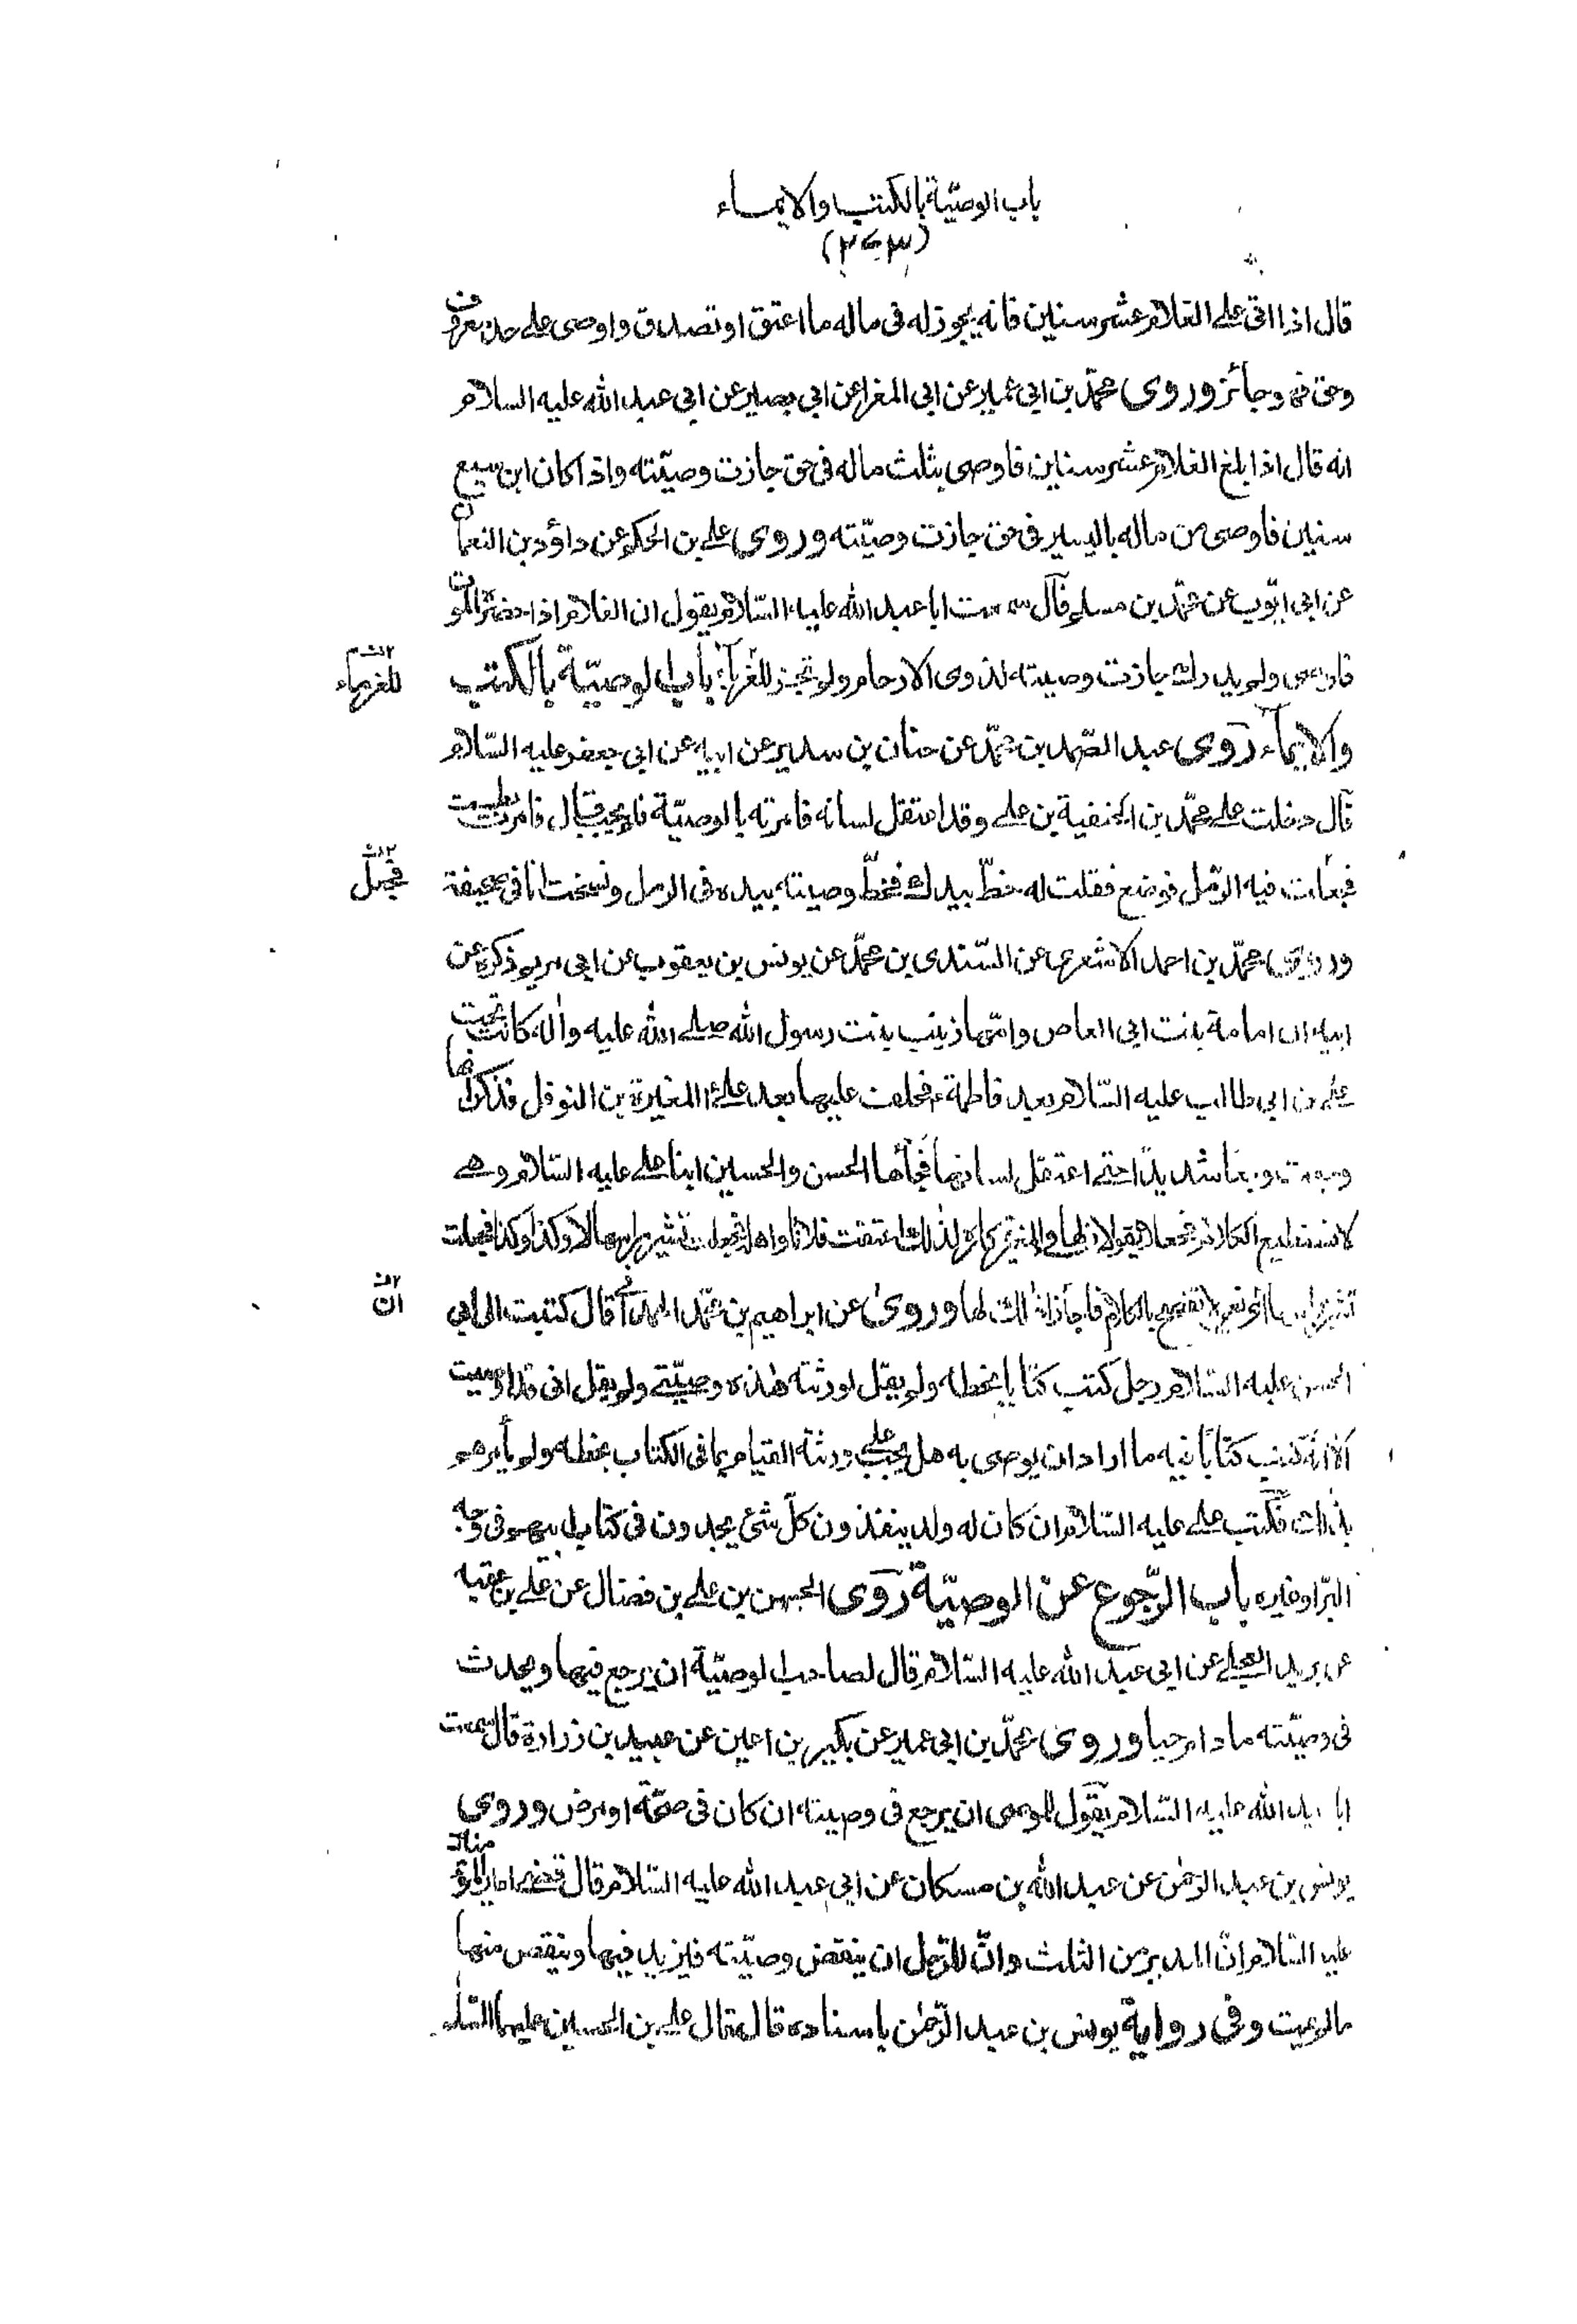 باب الوصيّة بالكتب والايماء
(٣٧٣)
قال اذا اتى على الغلام عشر سنين فانه يجوز له فى ماله ما اعتق او تصدق واوصى على حد معروف
وحق فهو جائز وروى محمّد بن ابى عمير عن ابى المغرا عن ابى بصير عن ابى عبد الله عليه السلام
انه قال اذا بلغ الغلام عشر سنين فاوصى بثلث ماله فى حق جازت وصيّته واذا كان ابن سبع
سنين فاوصى من ماله باليسير فى حق جازت وصيّته وروى على بن الحكم عن داؤد بن النعمان
عن ابى ايّوب عن محمّد بن مسلم قال سمعت ابا عبد الله عليه السّلام يقول ان الغلام اذا حضره الموت
فاوصى ولم يدرك جازت وصيته لذوى الارحام ولم تجز للغرباء باب الوصيّة بالكتب
للغرماء
والايماء روى عبد الصّمد بن محمّد عن حنان بن سدير عن ابيه عن ابى جعفر عليه السّلام
قال دخلت على محمّد بن الحنفية بن على وقد اعتقل لسانه فامرته بالوصيّة فلم يجب قال فامرت بطست
فجعلت فيه الرّمل فوضع فقلت له خطّ بيدك فخطّ وصيته بيده فى الرمل ونسخت انا فى صحيفة
فجعل
وروى محمّد بن احمد الاشعرى عن السّندى بن محمّد عن يونس بن يعقوب عن ابى مريم ذكره عن
ابيه ان امامة بنت ابى العاص وامّها زينب بنت رسول الله صلى الله عليه واله كانت تحت
على بن ابى طالب عليه السّلام بعد فاطمة ع فخلف عليها بعد علىّ المغيرة بن النوفل فذكر انها
وجعت وجعا شديدًا حتى اعتقل لسانها فجاءها الحسن والحسين ابنا على عليه السّلام وهى
لا تستطيع الكلام فجعلا يقولان لها والمغيرة كاره لذلك اعتقت فلانا واهله فجعلت تشير براسها لا وكذا وكذا فجعلت
تشير براسها اى نعم لا تفصح بالكلام فاجازا ذلك لها وروى عن ابراهيم بن محمّد الهمدانى قال كتبت الى ابى
ان
الحسن عليه السّلام رجل كتب كتابا بخطه ولم يقل لورثته هذه وصيّتى ولم يقل انى قد اوصيت
الا انه كتب كتابًا فيه ما اراد ان يوصى به هل يجب على ورثته القيام بما فى الكتاب بخطه ولم يأمرهم
بذلك فكتب على عليه السّلام ان كان له ولد ينفذون كلّ شئ يجدون فى كتاب ابيهم فى وجه
البرّ او غيره باب الرّجوع عن الوصيّة روى الحسن بن على بن فضال عن على بن عقبه
عن بريد العجلى عن ابى عبد الله عليه السّلام قال لصاحب الوصيّة ان يرجع فيها ويحدث
فى وصيّته ما دام حيا وروى محمّد بن ابى عمير عن بكير بن اعين عن عبيد بن زرارة قال سمعت
ابا عبد الله عليه السّلام يقول للموصى ان يرجع فى وصيته ان كان فى صحّة او مرض وروى
يونس بن عبد الرّحمٰن عن عبد الله بن مسكان عن ابى عبد الله عليه السّلام قال قضى امير المؤمنين
عليه السّلام انّ المدبر من الثلث وانّ للرّجل ان ينقض وصيّته فيزيد فيها وينقص منها
ما لم يمت وفى رواية يونس بن عبد الرّحمٰن باسناده قال قال على بن الحسين عليهما السّلام